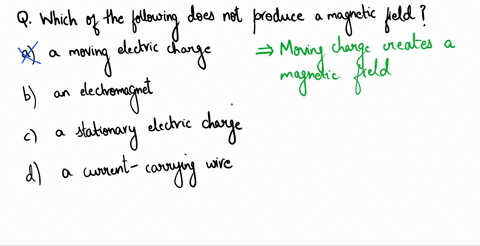 Q. Which of the following does not produce a magnetic field?
a) a moving electric charge ⇒ Moving charge creates a magnetic field
b) an electromagnet
c) a stationary electric charge
d) a current-carrying wire